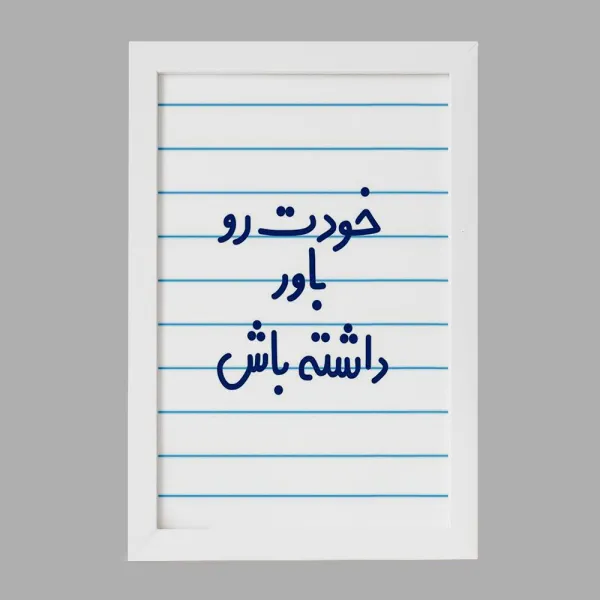 خودت رو
باور
داشته باش